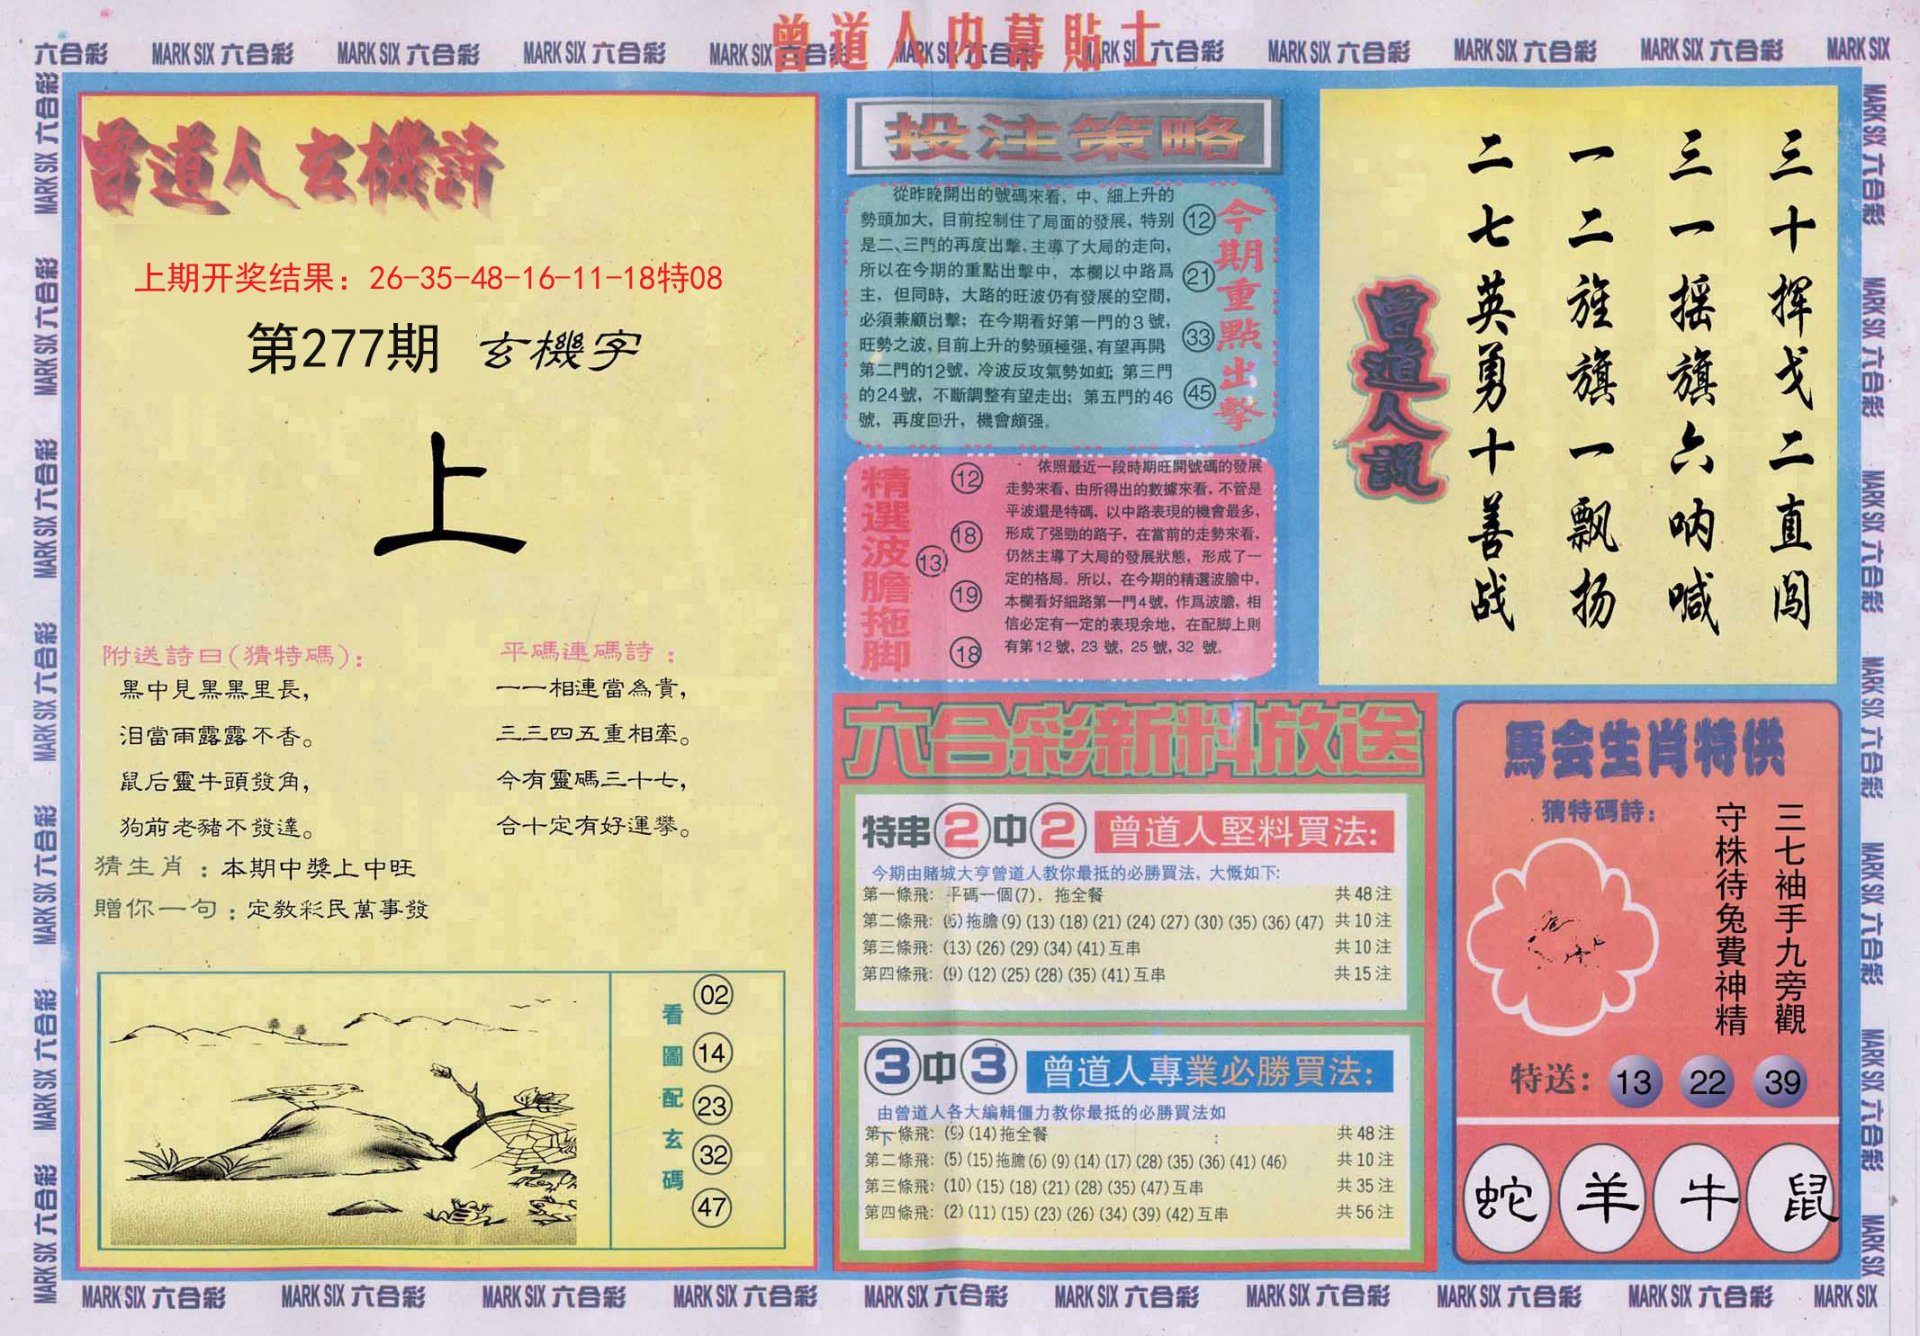 曾道人内幕貼士
六合彩 MARK SIX 六合彩 MARK SIX 六合彩 MARK SIX 六合彩 MARK SIX 六合彩 MARK SIX 六合彩 MARK SIX 六合彩 MARK SIX 六合彩 MARK SIX 六合彩 MARK SIX 六合彩 MARK SIX
曾道人玄機詩
上期开奖结果：26-35-48-16-11-18特08
第277期 玄機字
上
附送詩曰(猜特碼)：
黑中見黑黑里長，
泪當雨露露不香。
鼠后靈牛頭發角，
狗前老豬不發達。
平碼連碼詩：
一一相連當為貴，
三三四五重相牽。
今有靈碼三十七，
合十定有好運攀。
猜生肖：本期中獎上中旺
贈你一句：定教彩民萬事發
看圖配玄碼
02
14
23
32
47
投注策略
從昨晚開出的號碼來看，中、細上升的
勢頭加大，目前控制住了局面的發展，特別
是二、三門的再度出擊，主導了大局的走向，
所以在今期的重點出擊中，本欄以中路爲
主，但同時，大路的旺波仍有發展的空間，
必須兼顧出擊；在今期看好第一門的3號，
旺勢之波，目前上升的勢頭極强，有望再開，
第二門的12號，冷波反攻氣勢如虹，第三門
的24號，不斷調整有望走出；第五門的46
號，再度回升，機會頗强。
12
21
33
45
今期重點出擊
精選波膽拖脚
12
18
13
19
18
依照最近一段時期旺開號碼的發展
走勢來看，由所得出的數據來看，不管是
平波還是特碼，以中路表現的機會最多，
形成了强勁的路子，在當前的走勢來看，
仍然主導了大局的發展狀態，形成了一
定的格局。所以，在今期的精選波膽中，
本欄看好細路第一門4號，作爲波膽，相
信必定有一定的表現余地，在配脚上則
有第12號，23 號，25 號，32 號。
三十挥戈二直闯
三一摇旗六呐喊
一二旌旗一飘扬
二七英勇十善战
曾道人説
六合彩新料放送
特串2中2 曾道人堅料買法:
今期由賭城大亨曾道人教你最抵的必勝買法，大慨如下:
第一條飛: 平碼一個(7)，拖全餐 共48注
第二條飛: (6)拖膽(9)(13)(18)(21)(24)(27)(30)(35)(36)(47) 共10注
第三條飛: (13)(26)(29)(34)(41)互串 共10注
第四條飛: (9)(12)(25)(28)(35)(41)互串 共15注
3中3 曾道人專業必勝買法:
由曾道人各大編輯僵力教你最抵的必勝買法如
下:
第一條飛: (9)(14)拖全餐 共48注
第二條飛: (5)(15)拖膽(6)(9)(14)(17)(28)(35)(36)(41)(46) 共10注
第三條飛: (10)(15)(18)(21)(28)(35)(47)互串 共35注
第四條飛: (2)(11)(15)(23)(26)(34)(39)(42)互串 共56注
馬会生肖特供
猜特碼詩：
三七袖手九旁觀
守株待兔費神精
特送：13 22 39
蛇 羊 牛 鼠
MARK SIX 六合彩 MARK SIX 六合彩 MARK SIX 六合彩 MARK SIX 六合彩 MARK SIX 六合彩 MARK SIX 六合彩 MARK SIX 六合彩 MARK SIX 六合彩 MARK SIX 六合彩 MARK SIX